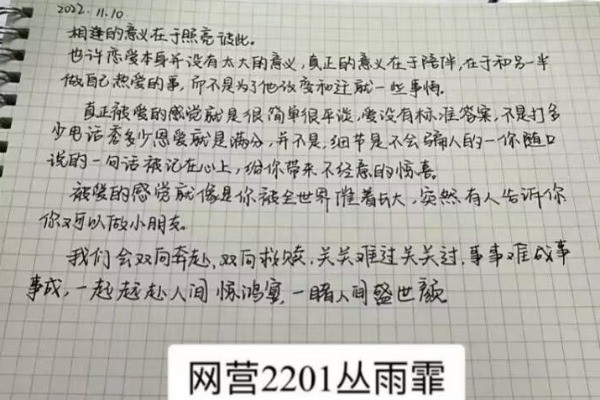 2022.11.10.
相逢的意义在于照亮彼此。
也许恋爱本身并没有太大的意义,真正的意义在于陪伴,在于和另一半
做自己热爱的事,而不是为了他改变和迁就一些事情。
真正被爱的感觉就是很简单很平淡,爱没有标准答案,不是打多
少电话秀多少恩爱就是满分,并不是,细节是不会骗人的一你随口
说的一句话被记在心上,给你带来不经意的惊喜。
被爱的感觉就像是你被全世界催着长大,突然有人告诉你
你又可以做小朋友。
我们会双向奔赴,双向救赎,关关难过关关过,事事难成事
事成,一起赴人间惊鸿宴,一睹人间盛世颜
网营2201丛雨霏